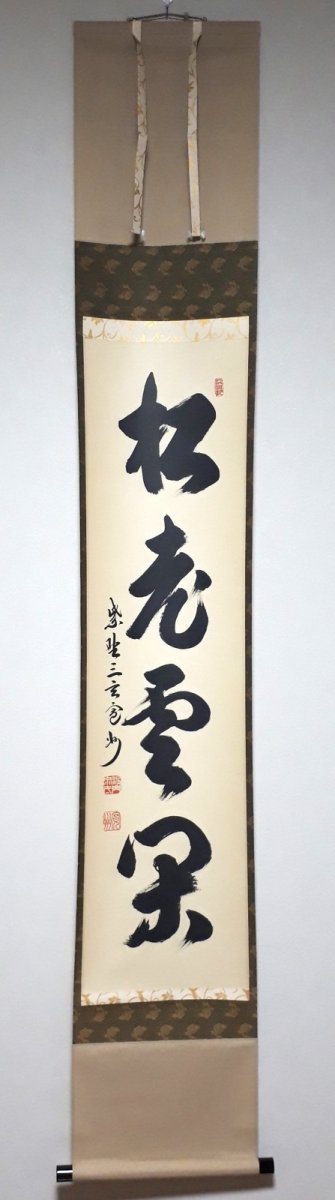 松老雲閑
紫野三玄寛州